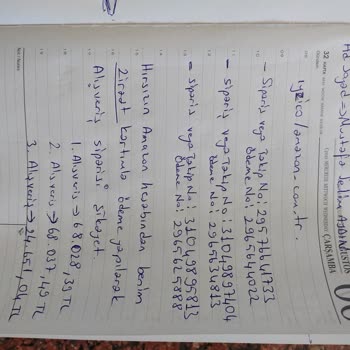 Ad Soyad → Mustafa Selim
iyzico / amazon.com.tr.
- Sipariş veya Takip No: 29576641733
Ödeme No: 2965641022
- sipariş veya Takip No: 31049897404
Ödeme No: 2965634813
- sipariş veya Takip No: 31049895813
Ödeme No: 2965625888
Hırsızın Amazon hesabından benim
Ziraat kartımla ödeme yapılarak
Alışveriş siparişi şikayet.
1. Alışveriş → 68.028,39 TL
2. Alışveriş → 68.037,49 TL
3. Alışveriş → 24.651,04 TL
ÇARŞAMBA